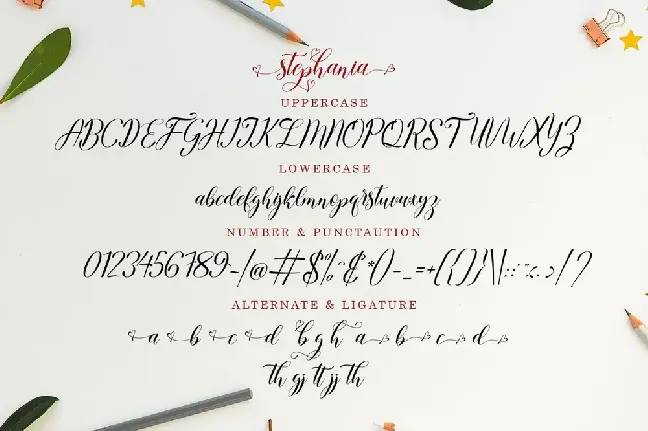 stephania
UPPERCASE
ABCDEFGHIJKLMNOPQRSTUVWXYZ
LOWERCASE
abcdefghijklmnopqrstuvwxyz
NUMBER & PUNCTAUTION
0123456789~/@#$%^&*()-_=+{()}\|:;"
ALTERNATE & LIGATURE
a b c d b g h a b c d
th gj tt jj th